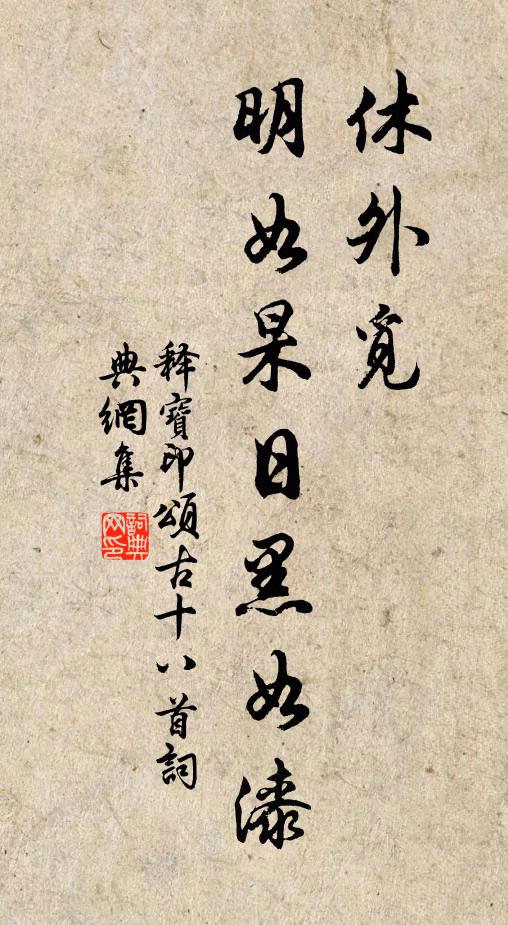 休外觅
明如杲日黑如漆
释寶印頌古十八首詞
典網集
詞典
网印